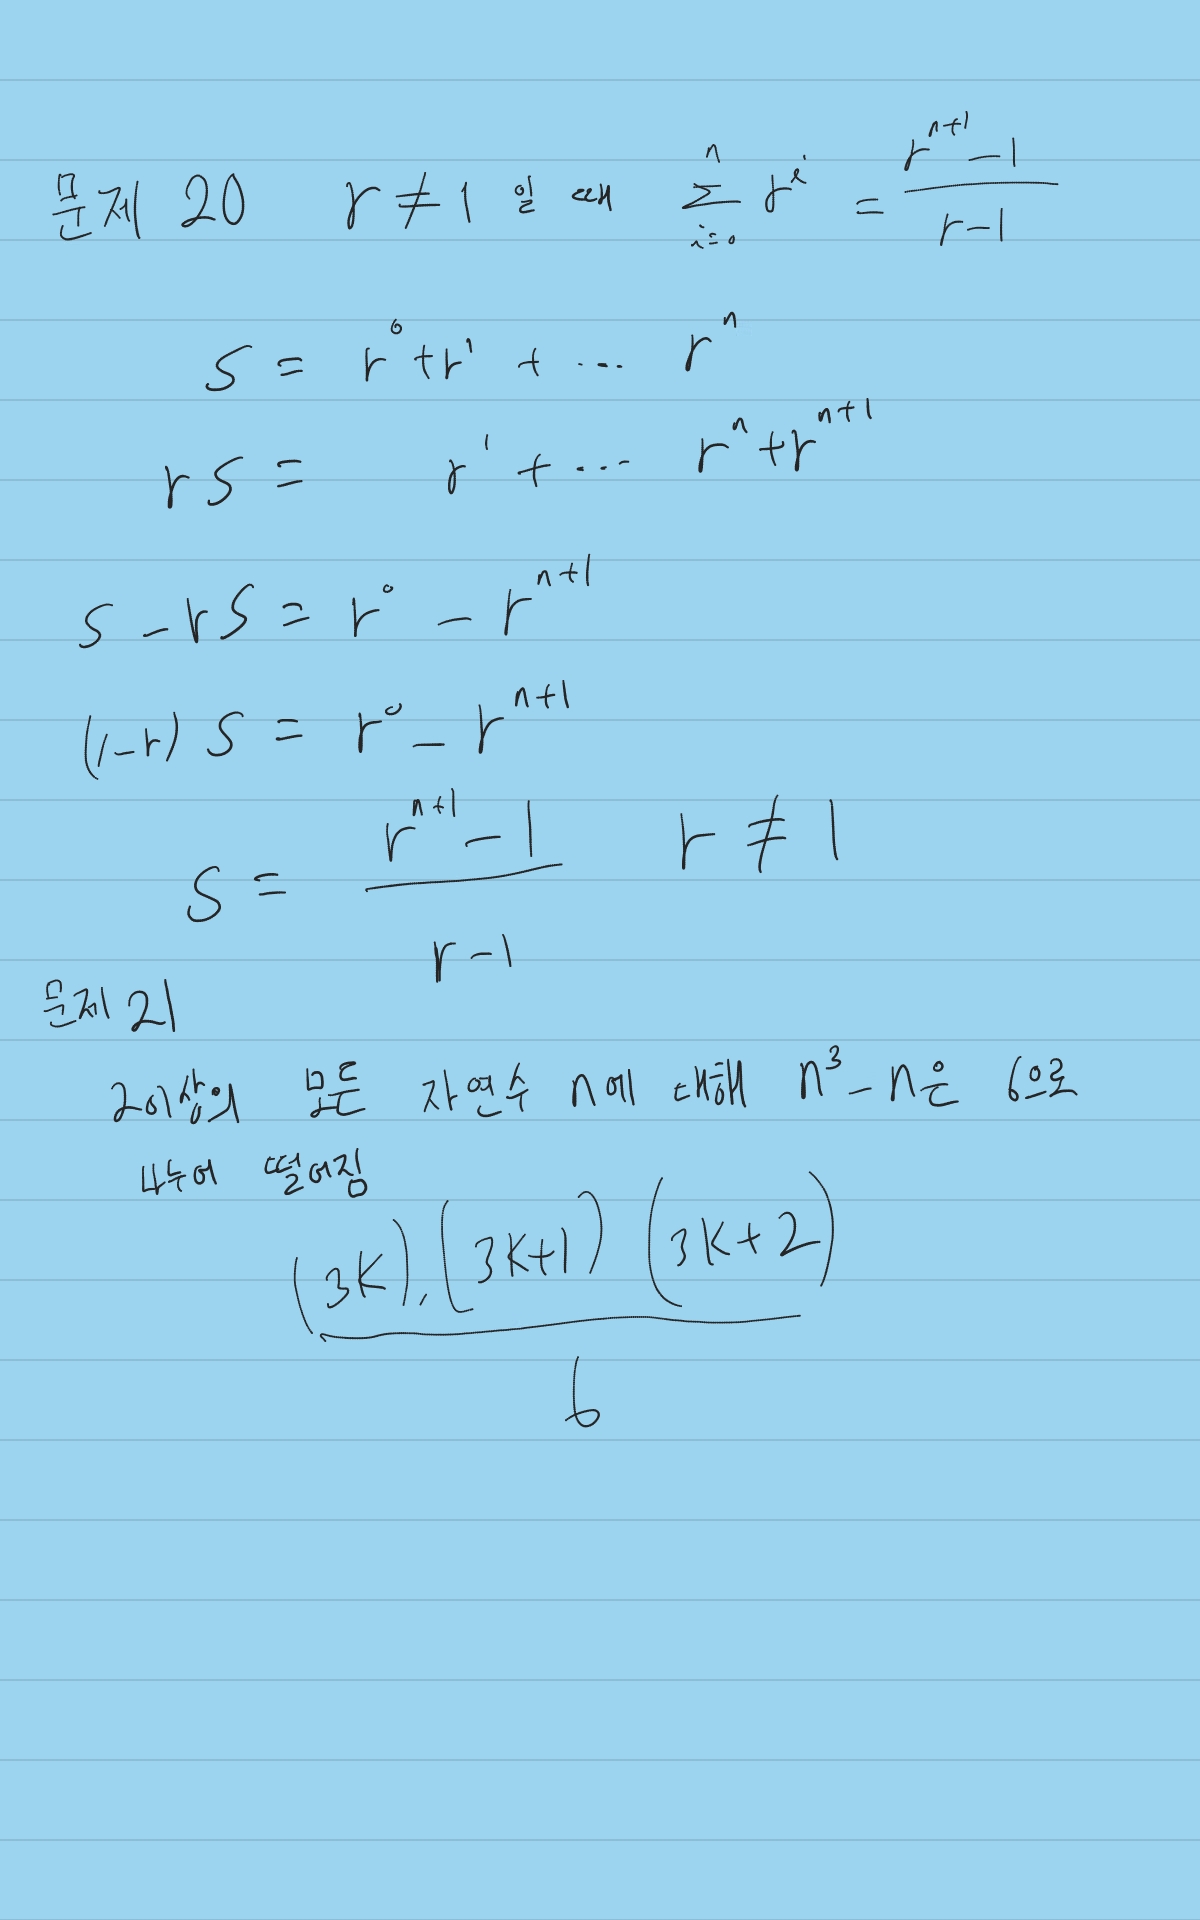 문제 20 r ≠ 1 일 때 \sum_{i=0}^{n} r^i = \frac{r^{n+1} - 1}{r - 1}
S = r^0 + r^1 + ... r^n
rS = r^1 + ... r^n + r^{n+1}
S - rS = r^0 - r^{n+1}
(1-r) S = r^0 - r^{n+1}
S = \frac{r^{n+1} - 1}{r - 1} r ≠ 1
문제 21
2이상의 모든 자연수 n에 대해 n^3 - n은 6으로
나누어 떨어짐
\frac{(3k), (3k+1) (3k+2)}{6}